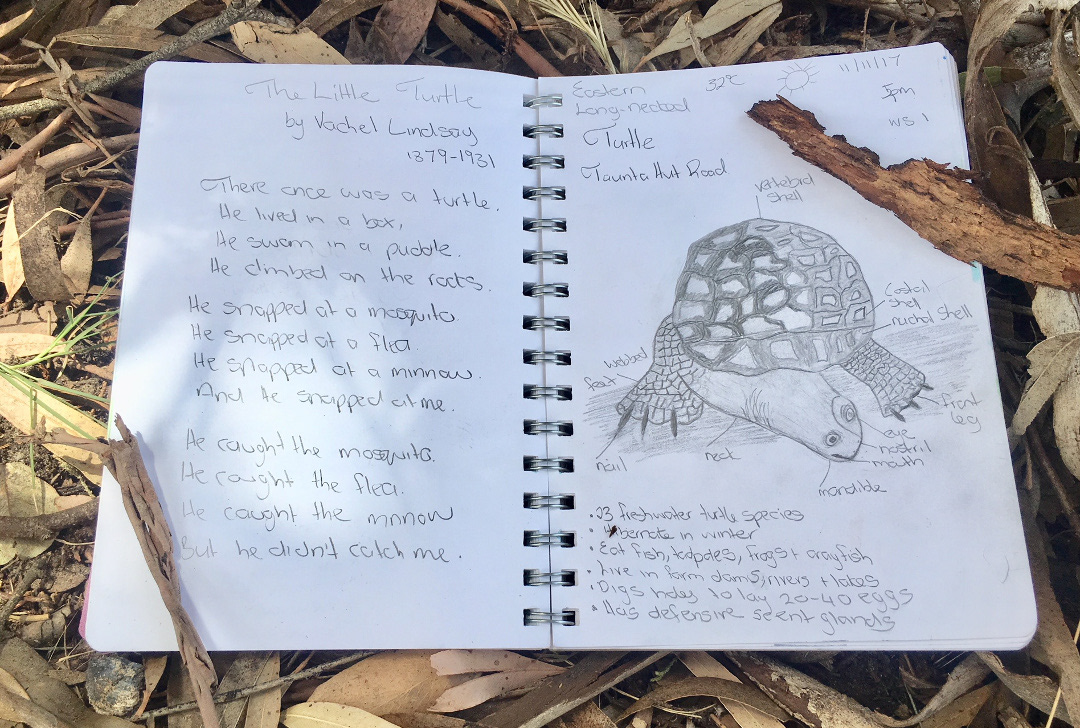 The Little Turtle
by Vachel Lindsay
1879-1931
There once was a turtle.
He lived in a box,
He swam in a puddle.
He climbed on the rocks.
He snapped at a mosquito.
He snapped at a flea.
He snapped at a minnow.
And He snapped at me.
He caught the mosquito.
He caught the flea.
He caught the minnow
But he didn't catch me.
Eastern
Long-necked
Turtle
32°C
11/11/17
5pm
WS 1
Taunta Hut Road
vertebral
shell
Costal
shell
nuchal shell
webbed
feet
front
leg
eye
nostril
mouth
nail
neck
mandible
• 23 freshwater turtle species
• Hibernate in winter
• Eat fish, tadpoles, frogs + crayfish
• Live in farm dams, rivers + lakes
• Digs holes to lay 20-40 eggs
• Has defensive scent glands